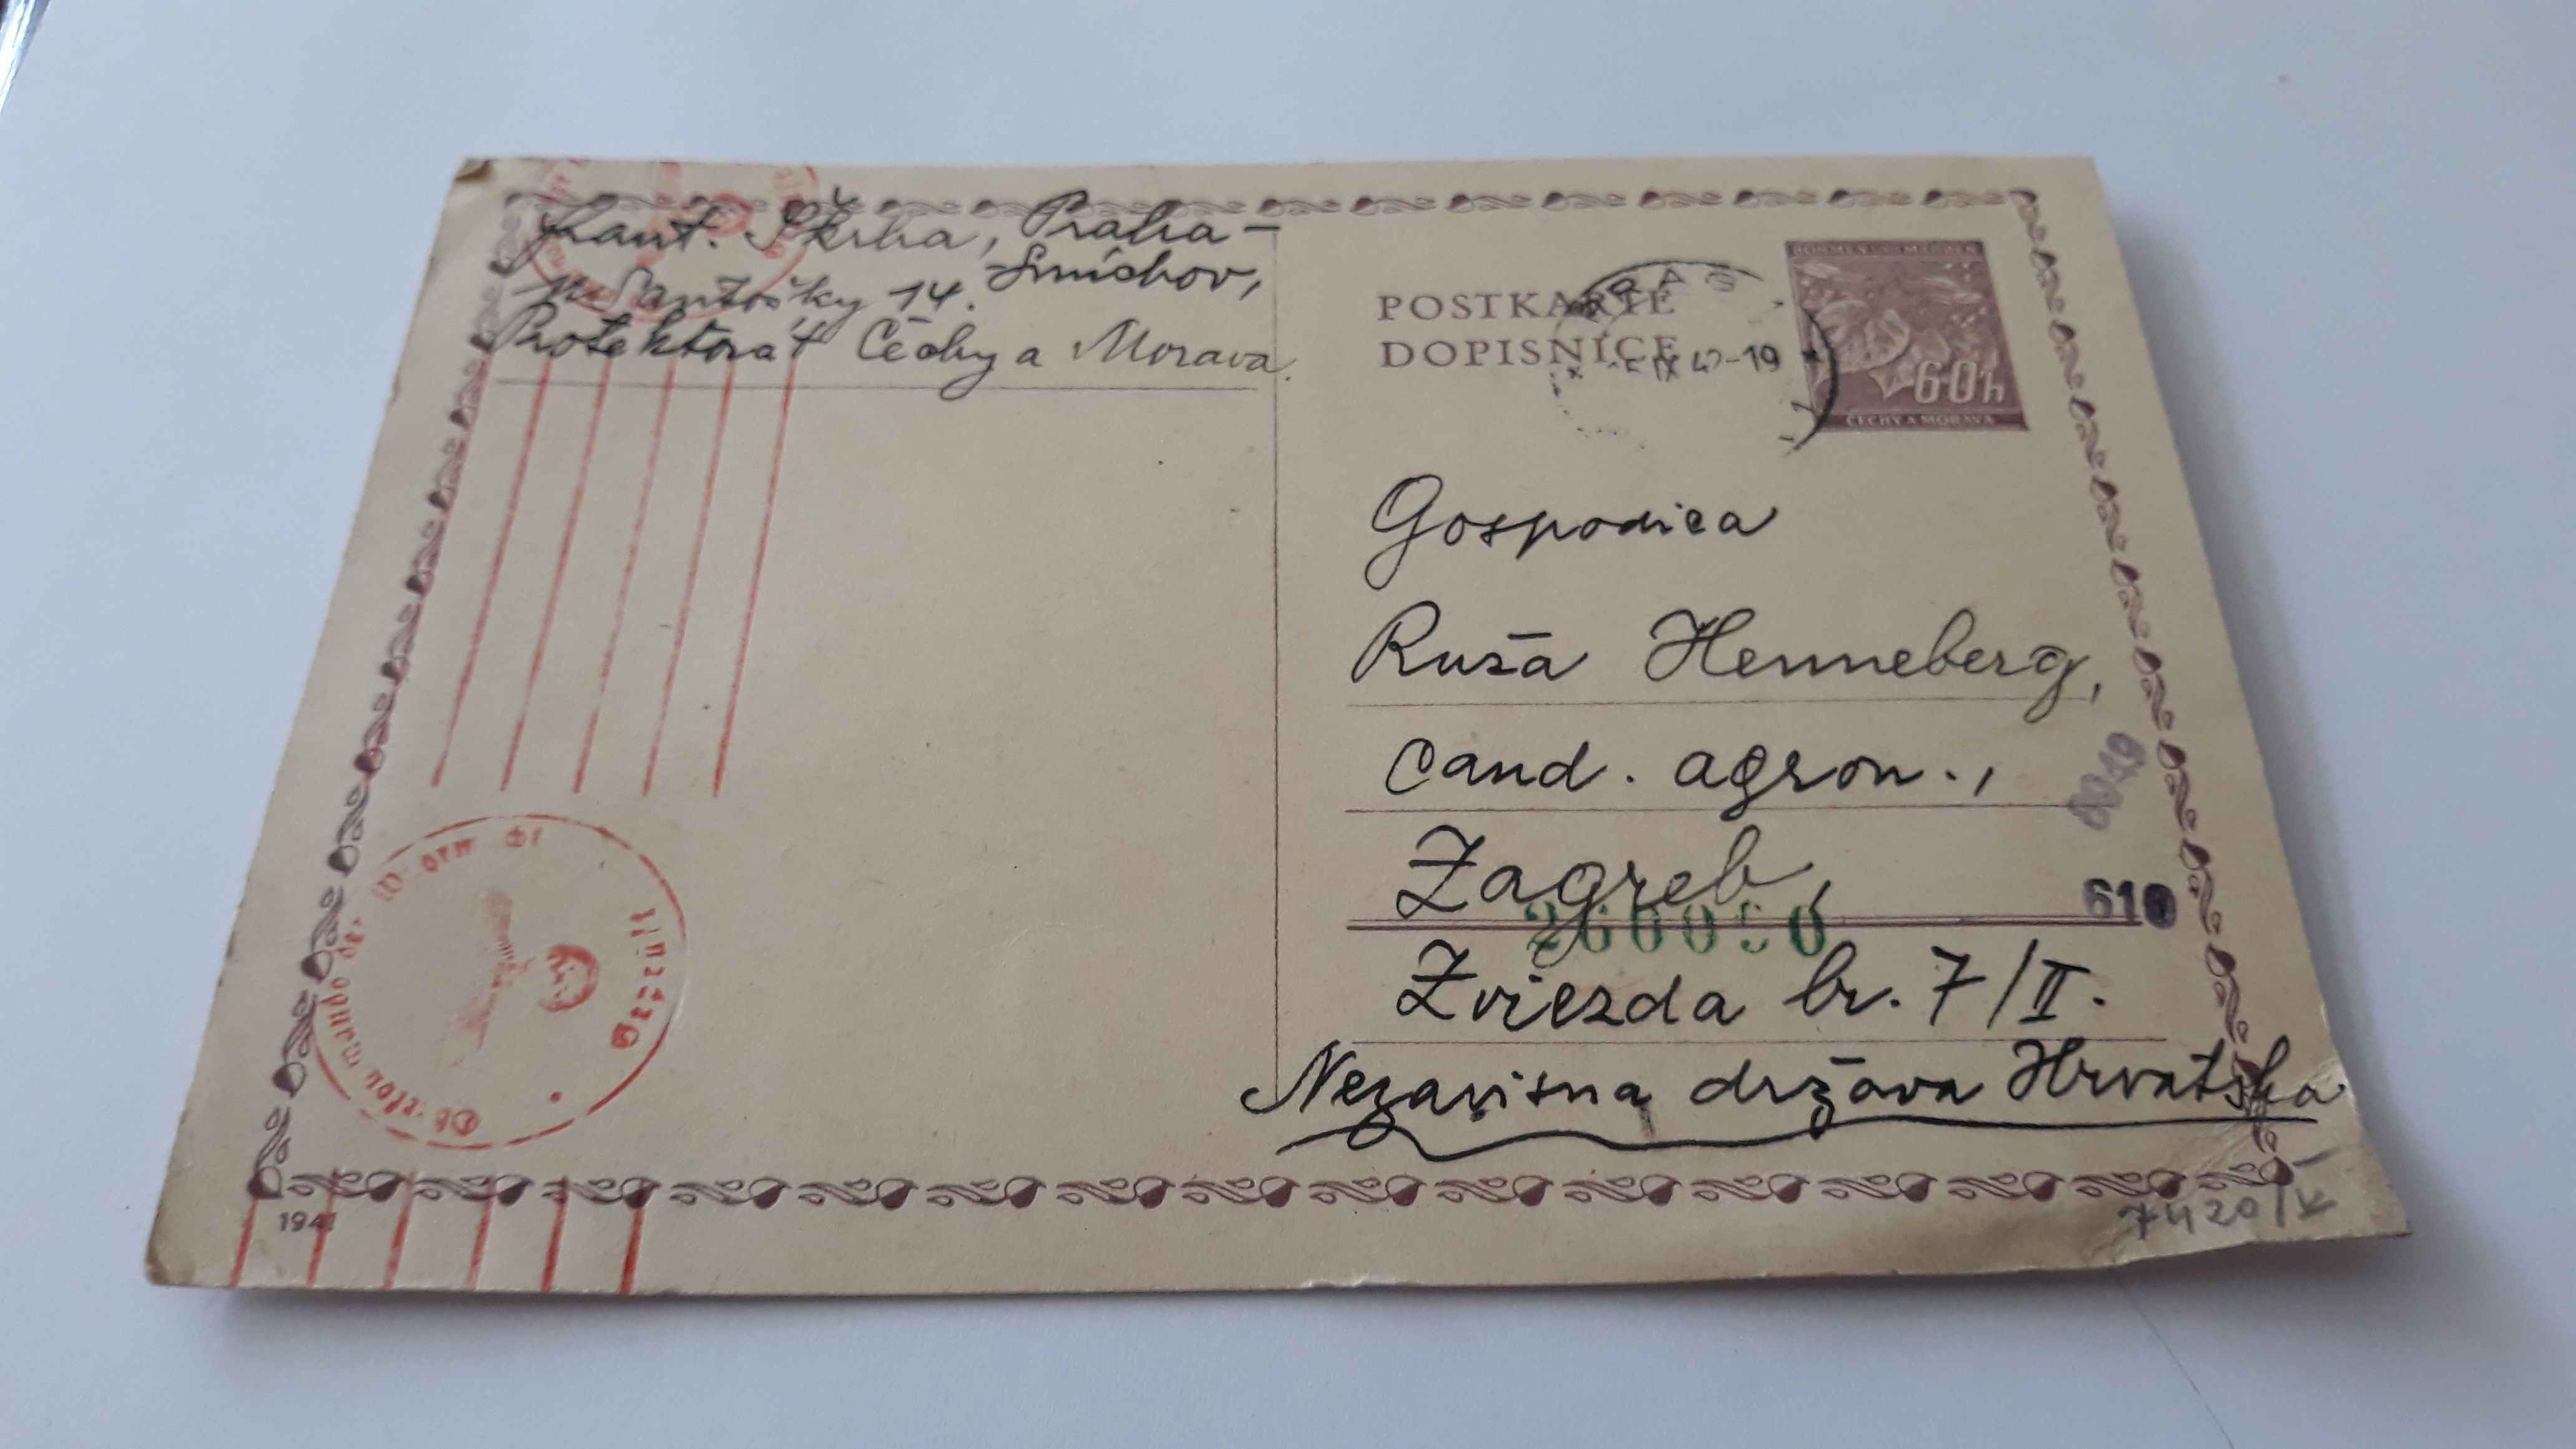 Frant. Škrha, Praha-
Smíchov,
Na Santošky 14.
Protektorát Čechy a Morava.
POSTKARTE
DOPISNICE
PRAG
IX 42-19
BÖHMEN UND MÄHREN
60h
ČECHY A MORAVA
Gospodica
Ruža Henneberg,
cand. agron.,
Zagreb,
610
Zviezda br. 7/II.
Nezavisna država Hrvatska
Oberkommando der Wehrmacht
Geprüft
194
7420/V